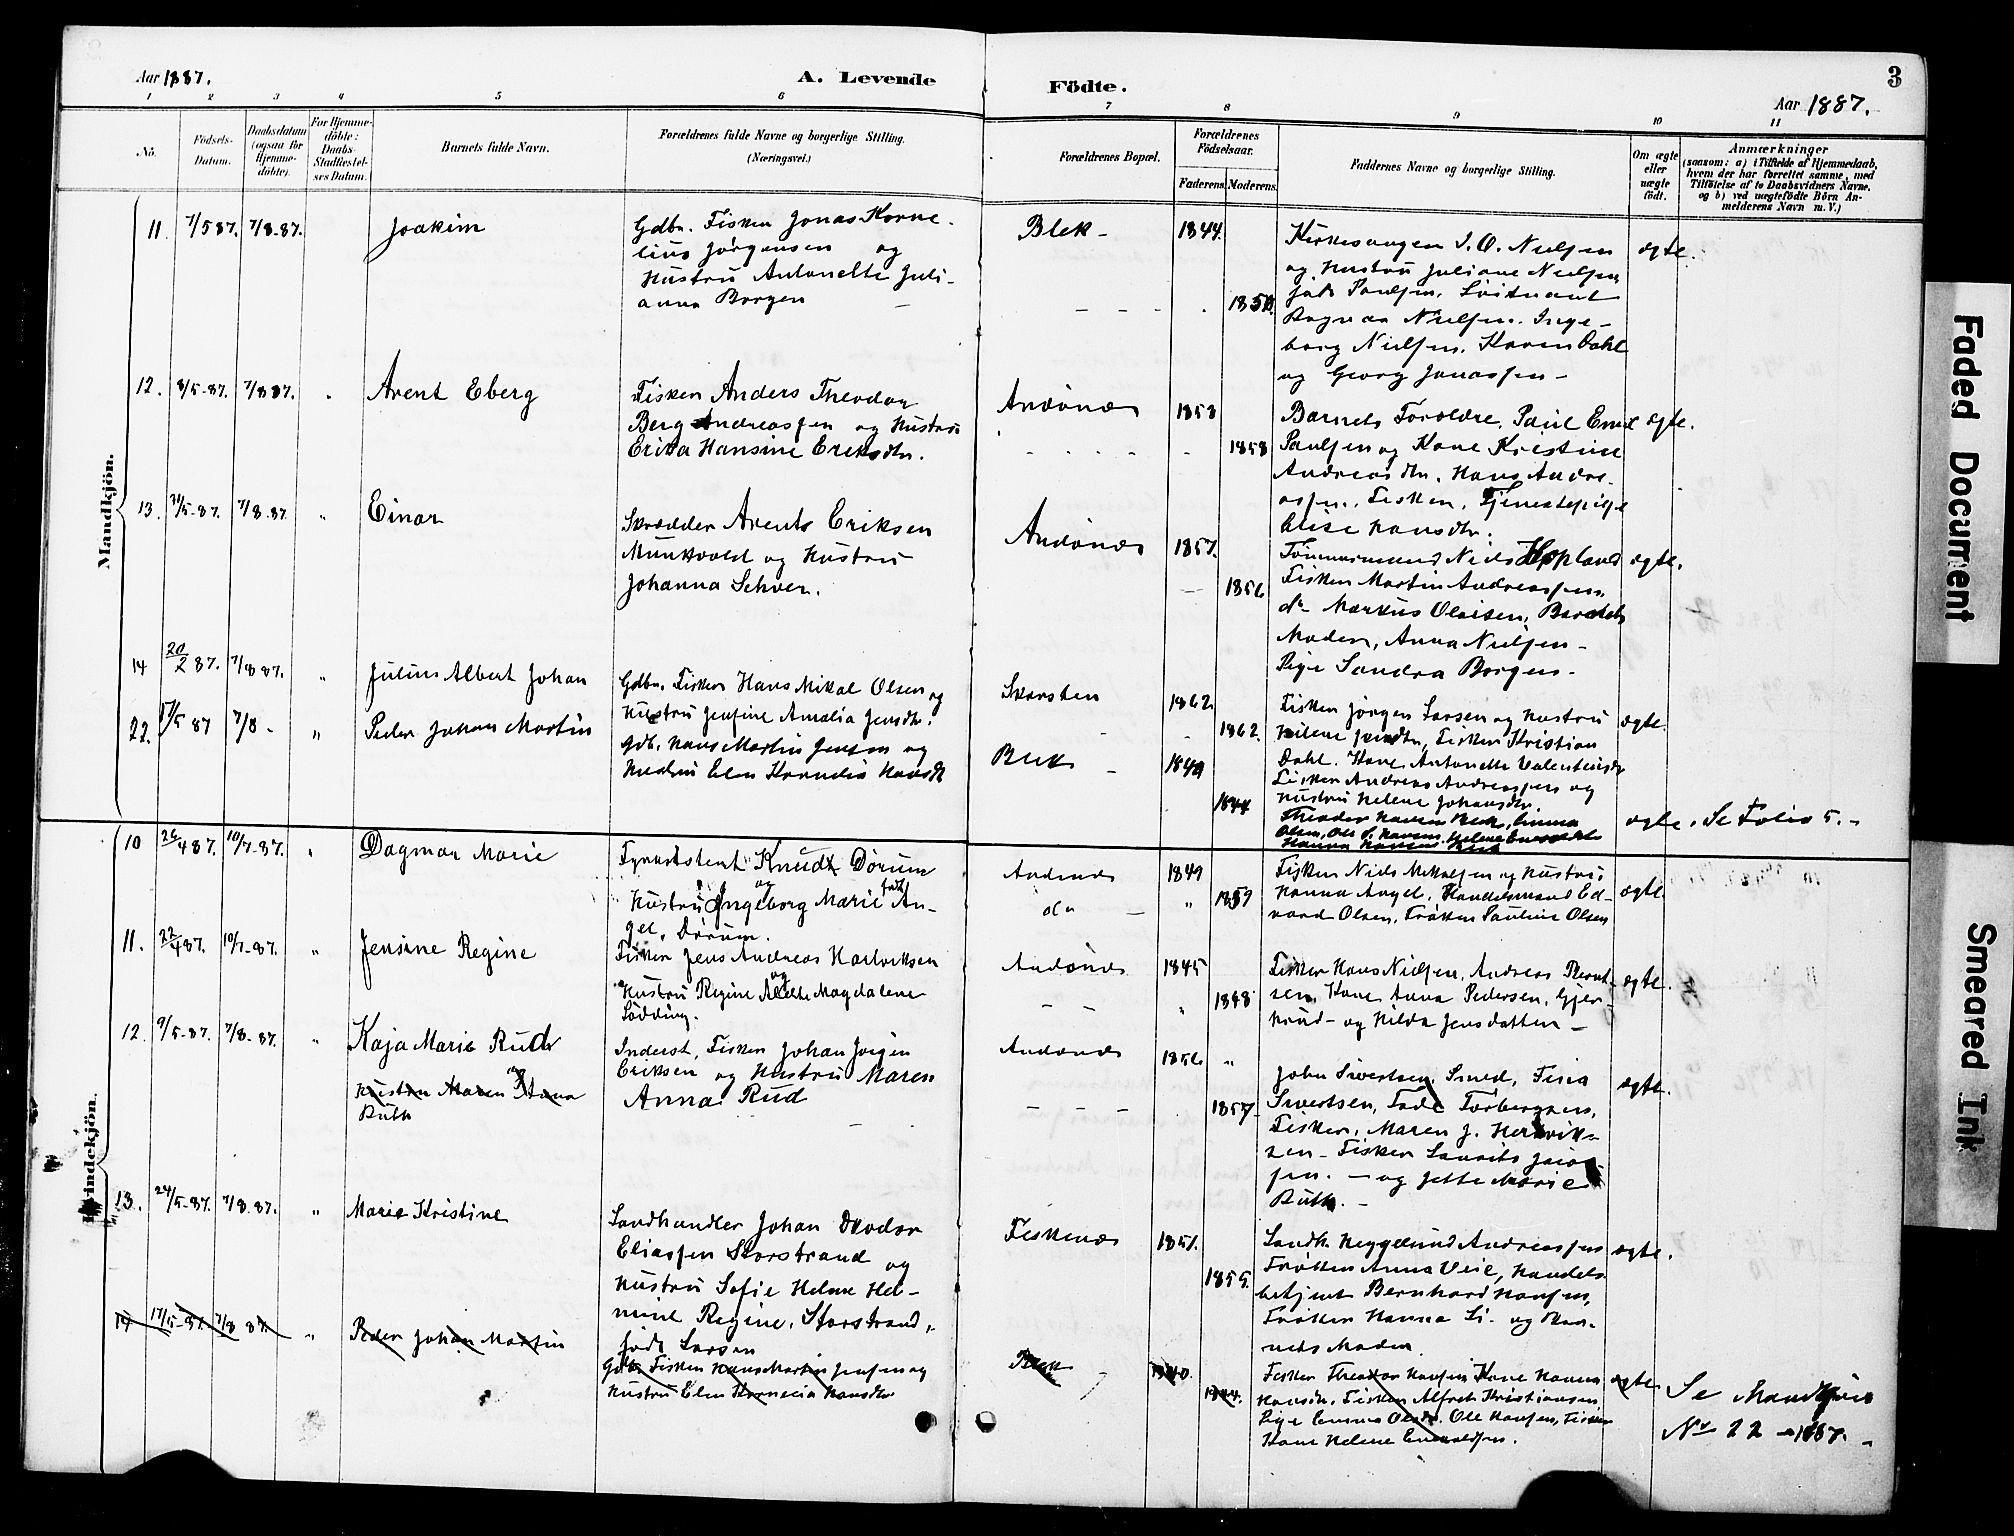 Aar 1887.
A. Levende
Födte.
3
Aar 1887.
1 2 3 4 5 6 7 8 9 10 11
No.
Födsels-
Datum.
Daabsdatum
(ogsaa for
Hjemme-
döbte).
For Hjemme-
döbte:
Daabs-
Stadfestel-
ses Datum.
Barnets fulde Navn.
Forældrenes fulde Navne og borgerlige Stilling.
(Næringsvei.)
Forældrenes Bopæl.
Forældrenes
Födselsaar.
Faderens.
Moderens.
Faddernes Navne og borgerlige Stilling.
Om ægte
eller
uægte
födt.
Anmærkninger
(saasom: a) i Tilfælde af Hjemmedaab,
hvem der har forrettet samme, med
Tilföielse af to Daabsvidners Navne.
og b) ved uægtefödte Börn An-
melderens Navn m. V.)
Mandkjön.
11. 7/5 87. 7/8-87.
Joakim
Gdbr. Fisker Jonas Korne-
lius Jørgensen og
Hustru Antonette Juli-
anna Borgen
Blek
1844.
Kirkesanger I. O. Nielsen
og Hustru Juliane Nielsen
Paulsen. Løitnant
Ragnar Nielsen. Inge-
borg Nielsen. Karen Dahl
og Georg Jonassen
ægte.
12. 8/5-87. 7/8 87. "
Arent Eberg
Fisker Anders Theodor
Berg Andreassen og Hustru
Erika Hansine Eriksdtr.
Andønes
1858
1858
Barnets Forældre. Paul Emil
Paulsen og Kone Kristine
Andreasdtr. Hans Andre-
assen. Fisker. Tjenestepige
Elise Hansdtr.
ægte.
13. 7/8 87. "
Einar
Skrædder Arents Eriksen
Munkvold og Hustru
Johanna Schver.
Andønes
1857.
1856
Tømmermand Niels Hopland
Fisker Martin Andreassen
do Markus Olaisen, Barnets
Moder, Anna Nielsen
Pige Sandra Borgen
ægte.
14 20/2 87. 7/8 87. "
Julius Albert Johan
Gdbr. Fisker Hans Mikal Olsen og
Hustru Jensine Amalia Jensdtr.
Skarsten
1862.
1862.
Fisker Jørgen Larsen og Hustru
Fisker Kristian
Dahl. Kone Antonette Valentinsdtr
Fisker Andreas Andreassen og
Hustru Helene Johansdtr.
ægte.
22. 17/5 87 7/8 - "
Peder Johan Martin
Gdb. Hans Martin Jensen og
Hustru Elen Kornelia Hansdtr
Blek
1844
Theodor Hansen Blek, Emma
Olsen, Ole P. Hansen, Helene
Hanna Hansen Blek
ægte. Se Folio 5.
Kvindekjön.
10 26/4 87. 10/7-87. "
Dagmar Marie
Fyrassistent Knudt Dørum
og
Hustru Ingeborg Marie født An-
gel, Dørum.
Andenes
do
1849
1859
Fisker Niels Mikalsen og Hustru
Hanna Angel, Handelsmand Ed-
vard Olsen, Frøken Pauline Olsen
ægte
11. 22/4 87. 10/7-87. "
Jensine Regine
Fisker Jens Andreas Hartviksen
og
Hustru Regine Adelte Magdalene
Lödding.
Andønes
1845
1848
Fisker Hans Nielsen, Andreas Bernt-
sen, Kone Anna Pedersen, Gjer-
trud og Hilda Jensdatter
ægte.
12. 9/5-87. 7/8-87. "
Kaja Marie Rud
Hustru Maren og Anna
Ruth
Inderst, Fisker Johan Jørgen
Eriksen og Hustru Maren
Anna Rud
Andønes
1856 "
1857
John Sivertsen, Smed, Tina
Sivertsen, Tade Torbergsen,
Fisker, Maren J. Hertvik-
sen - Fisker Laurits
sen. - og Jette Marie
Ruth.
ægte.
13. 24/5-87. 7/8.87. "
Marie Kristine
Landhandler Johan Theodor
Eliassen Storstrand
og
Hustru Sofie Helene Hel-
mine Regine, Storstrand,
født Larsen
Fiskenes
1851.
1855.
Landh. Heggelund Andreassen
Frøken Anna Veie, Handels-
betjent Bernhard Hansen,
Frøken Hanna Li. og Bar-
nets Moder
ægte.
14 17/5-87. 7/8 87. "
Peder Johan Martin
Gdb. Fisken Hans Martin Jensen og
Hustru Elen Kornelia Hansdtr
Blek
1840.
1844.
Fisker Theodor Hansen Kone Hanna
Hansdtr. Fisker Alfred Kristiansen,
Pige Emma Olsdtr. Ole Hansen, Fisker
Kone Helene
ægte
Se Mandkjön
No 22 - 1887.
Faded Document
Smeared Ink